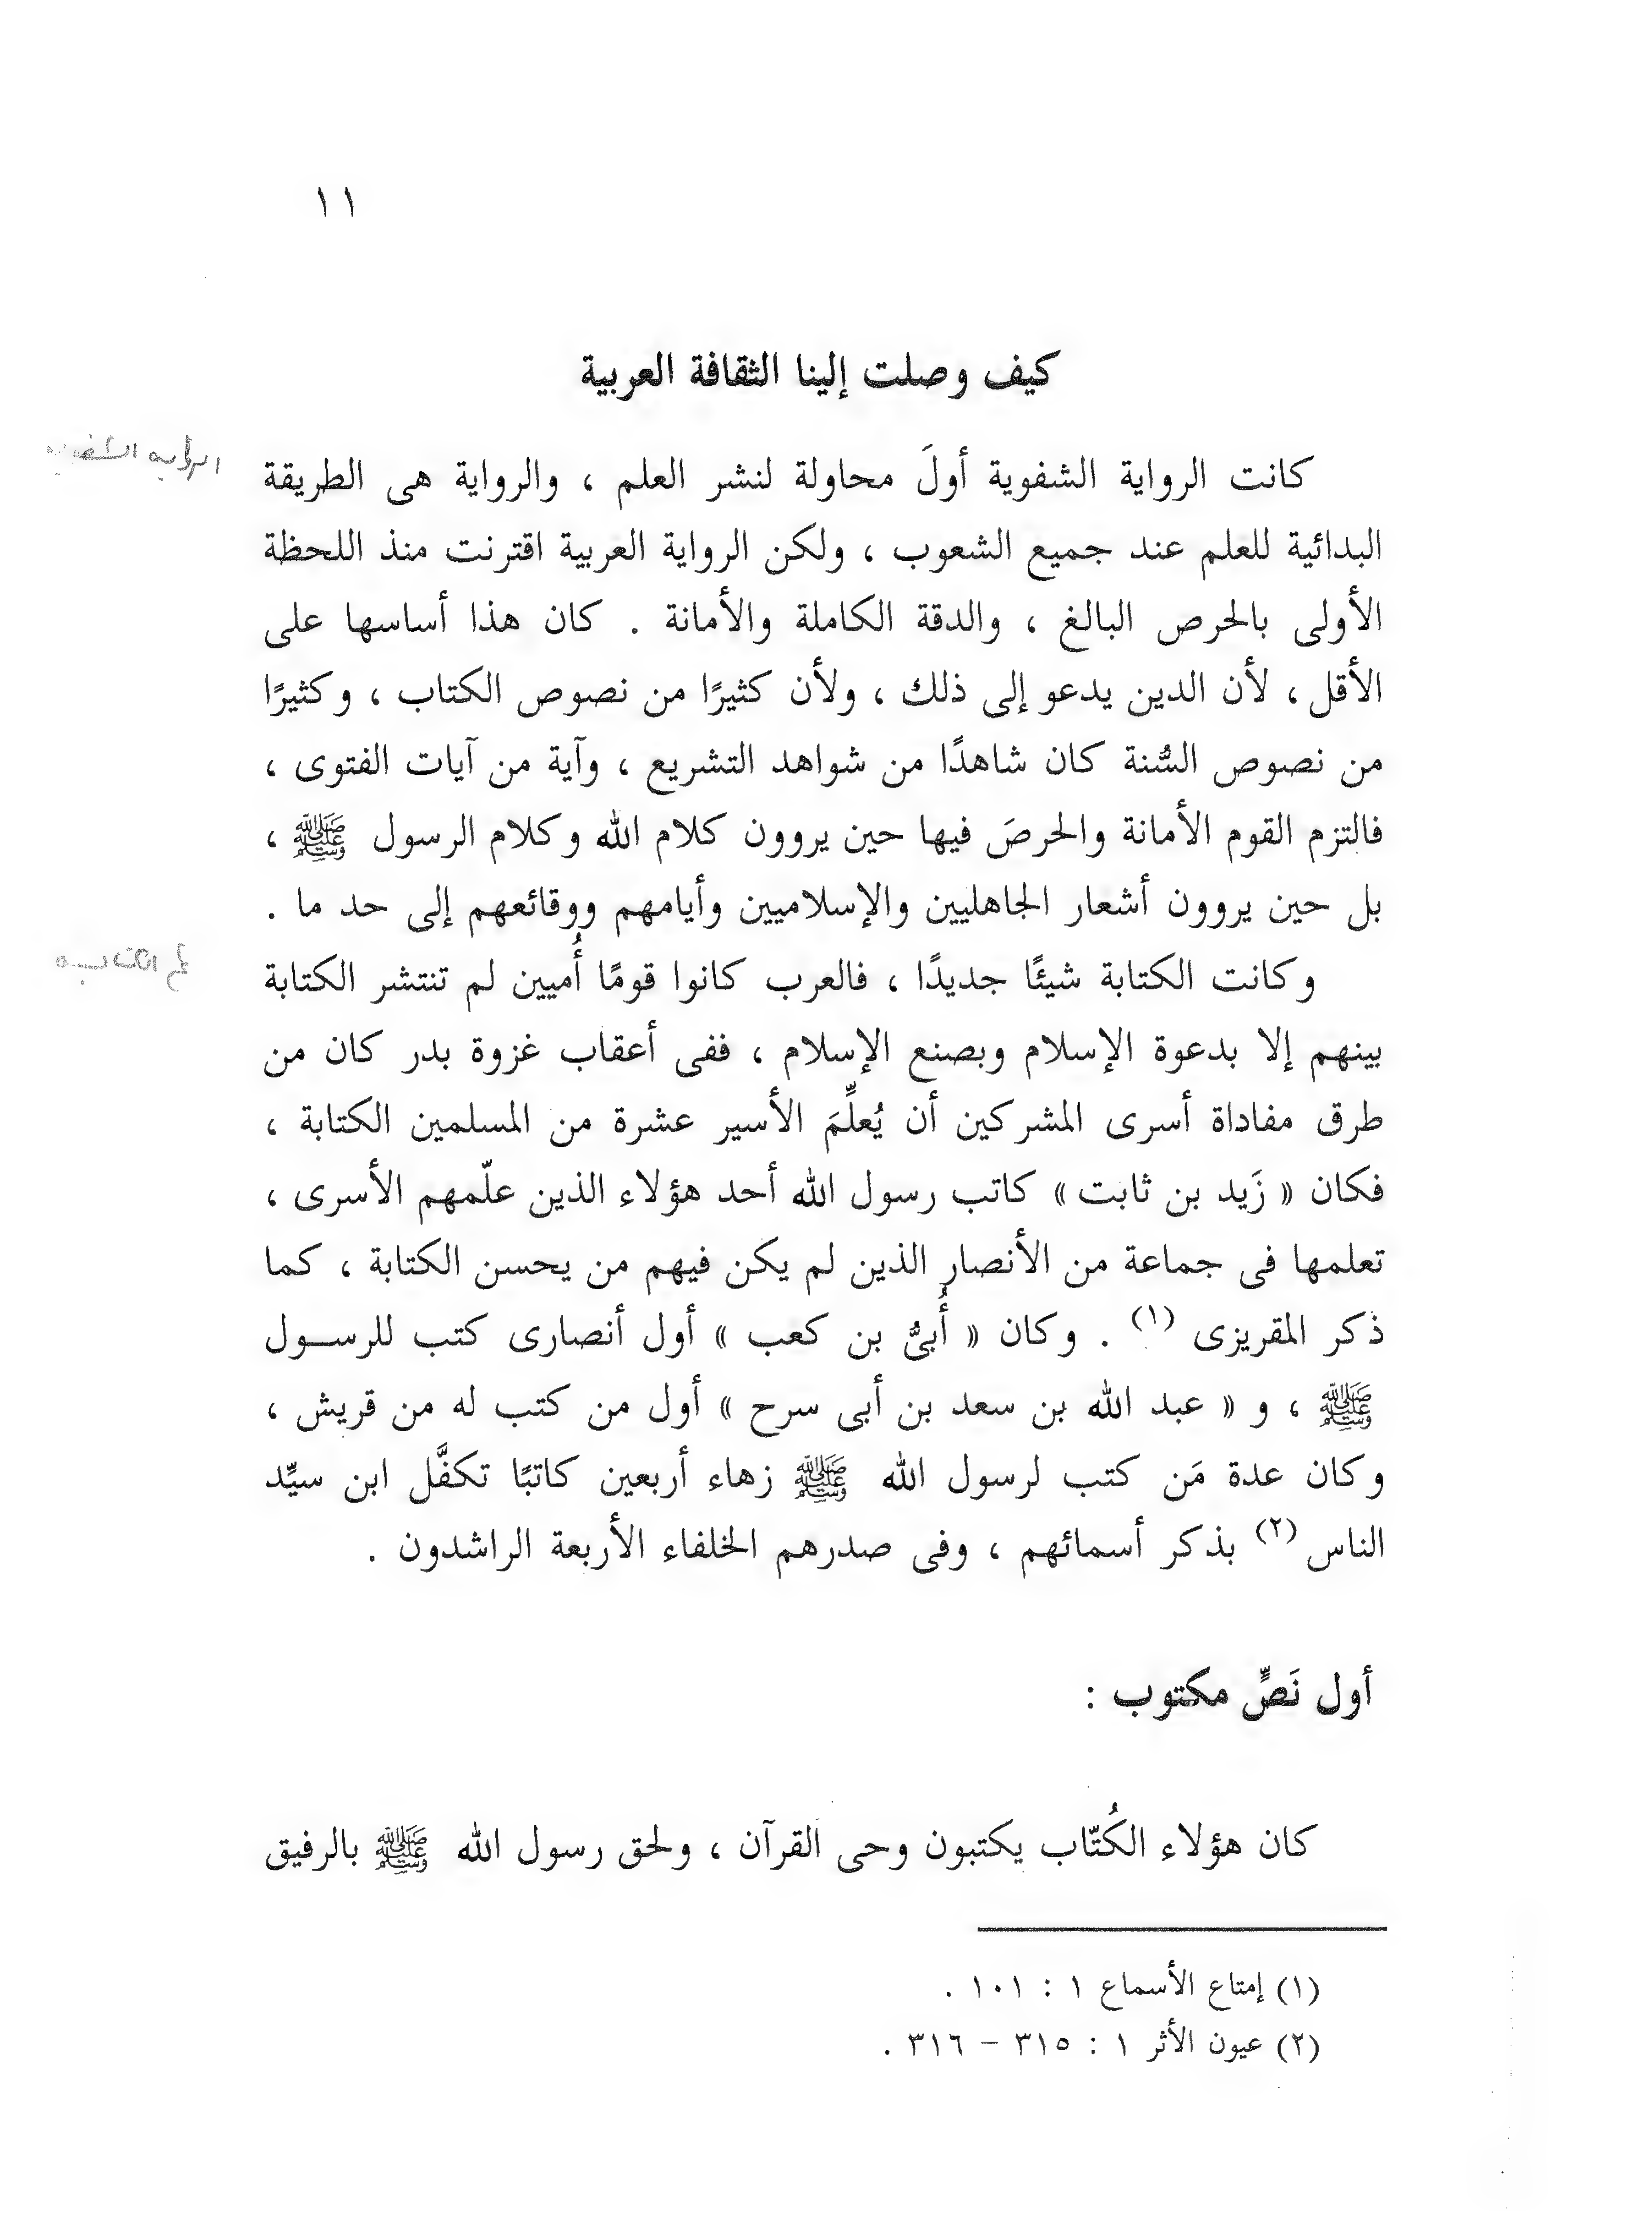 ١١
كيف وصلت إلينا الثقافة العربية
كانت الرواية الشفوية أولَ محاولة لنشر العلم ، والرواية هى الطريقة
البدائية للعلم عند جميع الشعوب ، ولكن الرواية العربية اقترنت منذ اللحظة
الأولى بالحرص البالغ ، والدقة الكاملة والأمانة . كان هذا أساسها على
الأقل ، لأن الدين يدعو إلى ذلك ، ولأن كثيرًا من نصوص الكتاب ، وكثيرًا
من نصوص السُّنة كان شاهدًا من شواهد التشريع ، وآية من آيات الفتوى ،
فالتزم القوم الأمانة والحرصَ فيها حين يروون كلام الله وكلام الرسول ﷺ ،
بل حين يروون أشعار الجاهليين والإسلاميين وأيامهم ووقائعهم إلى حد ما .
وكانت الكتابة شيئًا جديدًا ، فالعرب كانوا قومًا أُميين لم تنتشر الكتابة
بينهم إلا بدعوة الإسلام وبصنع الإسلام ، ففى أعقاب غزوة بدر كان من
طرق مفاداة أسرى المشركين أن يُعلِّمَ الأسير عشرة من المسلمين الكتابة ،
فكان « زَيد بن ثابت » كاتب رسول الله أحد هؤلاء الذين علّمهم الأسرى ،
تعلمها فى جماعة من الأنصار الذين لم يكن فيهم من يحسن الكتابة ، كما
ذكر المقريزى (١) . وكان « أُبىُّ بن كعب » أول أنصارى كتب للرســول
ﷺ ، و « عبد الله بن سعد بن أبى سرح » أول من كتب له من قريش ،
وكان عدة مَن كتب لرسول الله ﷺ زهاء أربعين كاتبًا تكفَّل ابن سيِّد
الناس (٢) بذكر أسمائهم ، وفى صدرهم الخلفاء الأربعة الراشدون .
أول نَصٍّ مكتوب :
كان هؤلاء الكُتّاب يكتبون وحى القرآن ، ولحق رسول الله ﷺ بالرفيق
(١) إمتاع الأسماع ١ : ١٠١ .
(٢) عيون الأثر ١ : ٣١٥ – ٣١٦ .